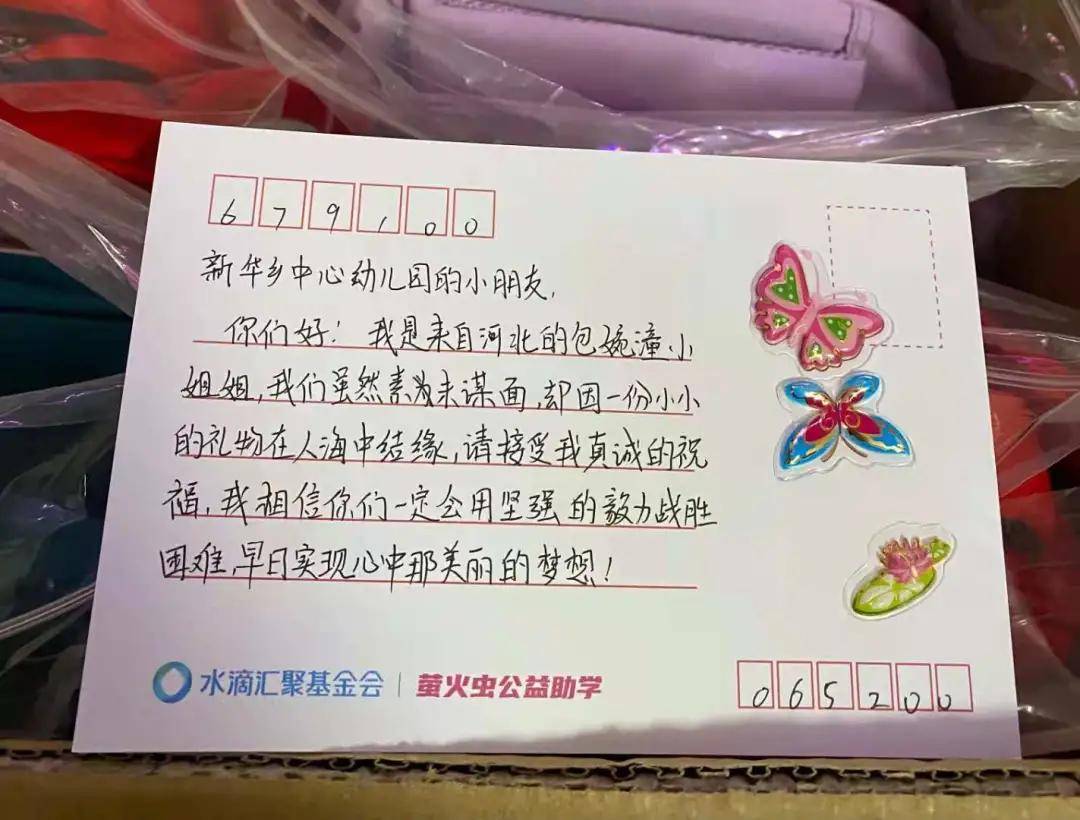 679100
新华乡中心幼儿园的小朋友,
你们好! 我是来自河北的包婉潼小
姐姐,我们虽然素为未谋面,却因一份小小
的礼物在人海中结缘,请接受我真诚的祝
福,我相信你们一定会用坚强的毅力战胜
困难,早日实现心中那美丽的梦想!
水滴汇聚基金会 | 萤火虫公益助学
065200